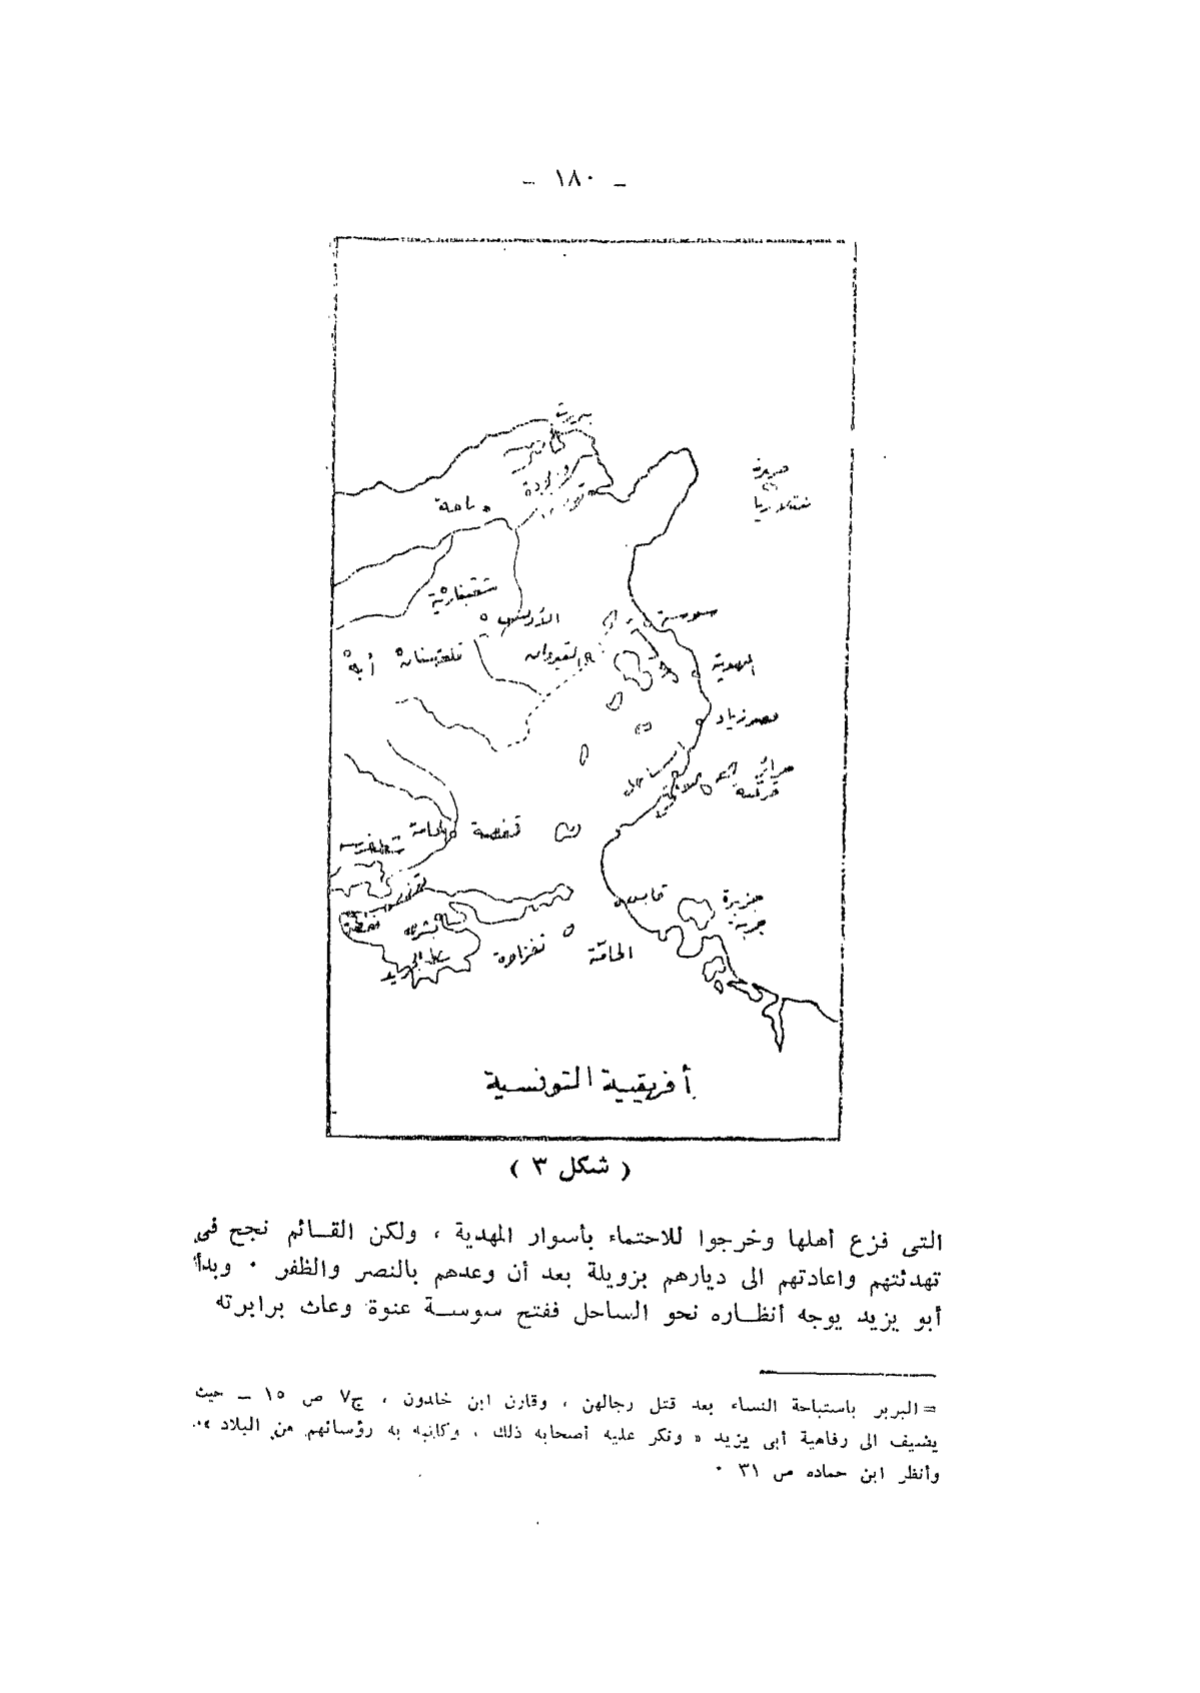 - ١٨٠ -
بنزرت
تونس
باجة
جزيرة
شقبنارية
الأربس
سوسة
القيروان
أبة
المهدية
قصر زياد
جزائر
قرقنة
قفصة
الحامة
نفطة
بشرى
قابس
جزيرة
جربة
نفزاوة
الحامّة
أفريقيية التونسية
( شكل ٣ )
التى فزع أهلها وخرجوا للاحتماء بأسوار المهدية ، ولكن القــائم نجح فى
تهدئتهم واعادتهم الى ديارهم بزويلة بعد أن وعدهم بالنصر والظفر ٠ وبدأ
أبو يزيد يوجه أنظــاره نحو الساحل ففتح سوســة عنوة وعاث برابرته
= البربر باستباحة النساء بعد قتل رجالهن ، وقارن ابن خلدون ، ج٧ ص ١٥ ــ حيث
يضيف الى رفاهية أبى يزيد ٥ ونكر عليه أصحابه ذلك ، وكاتبه به رؤسائهم من البلاد ٠٠
وأنظر ابن حماده ص ٣١ ٠